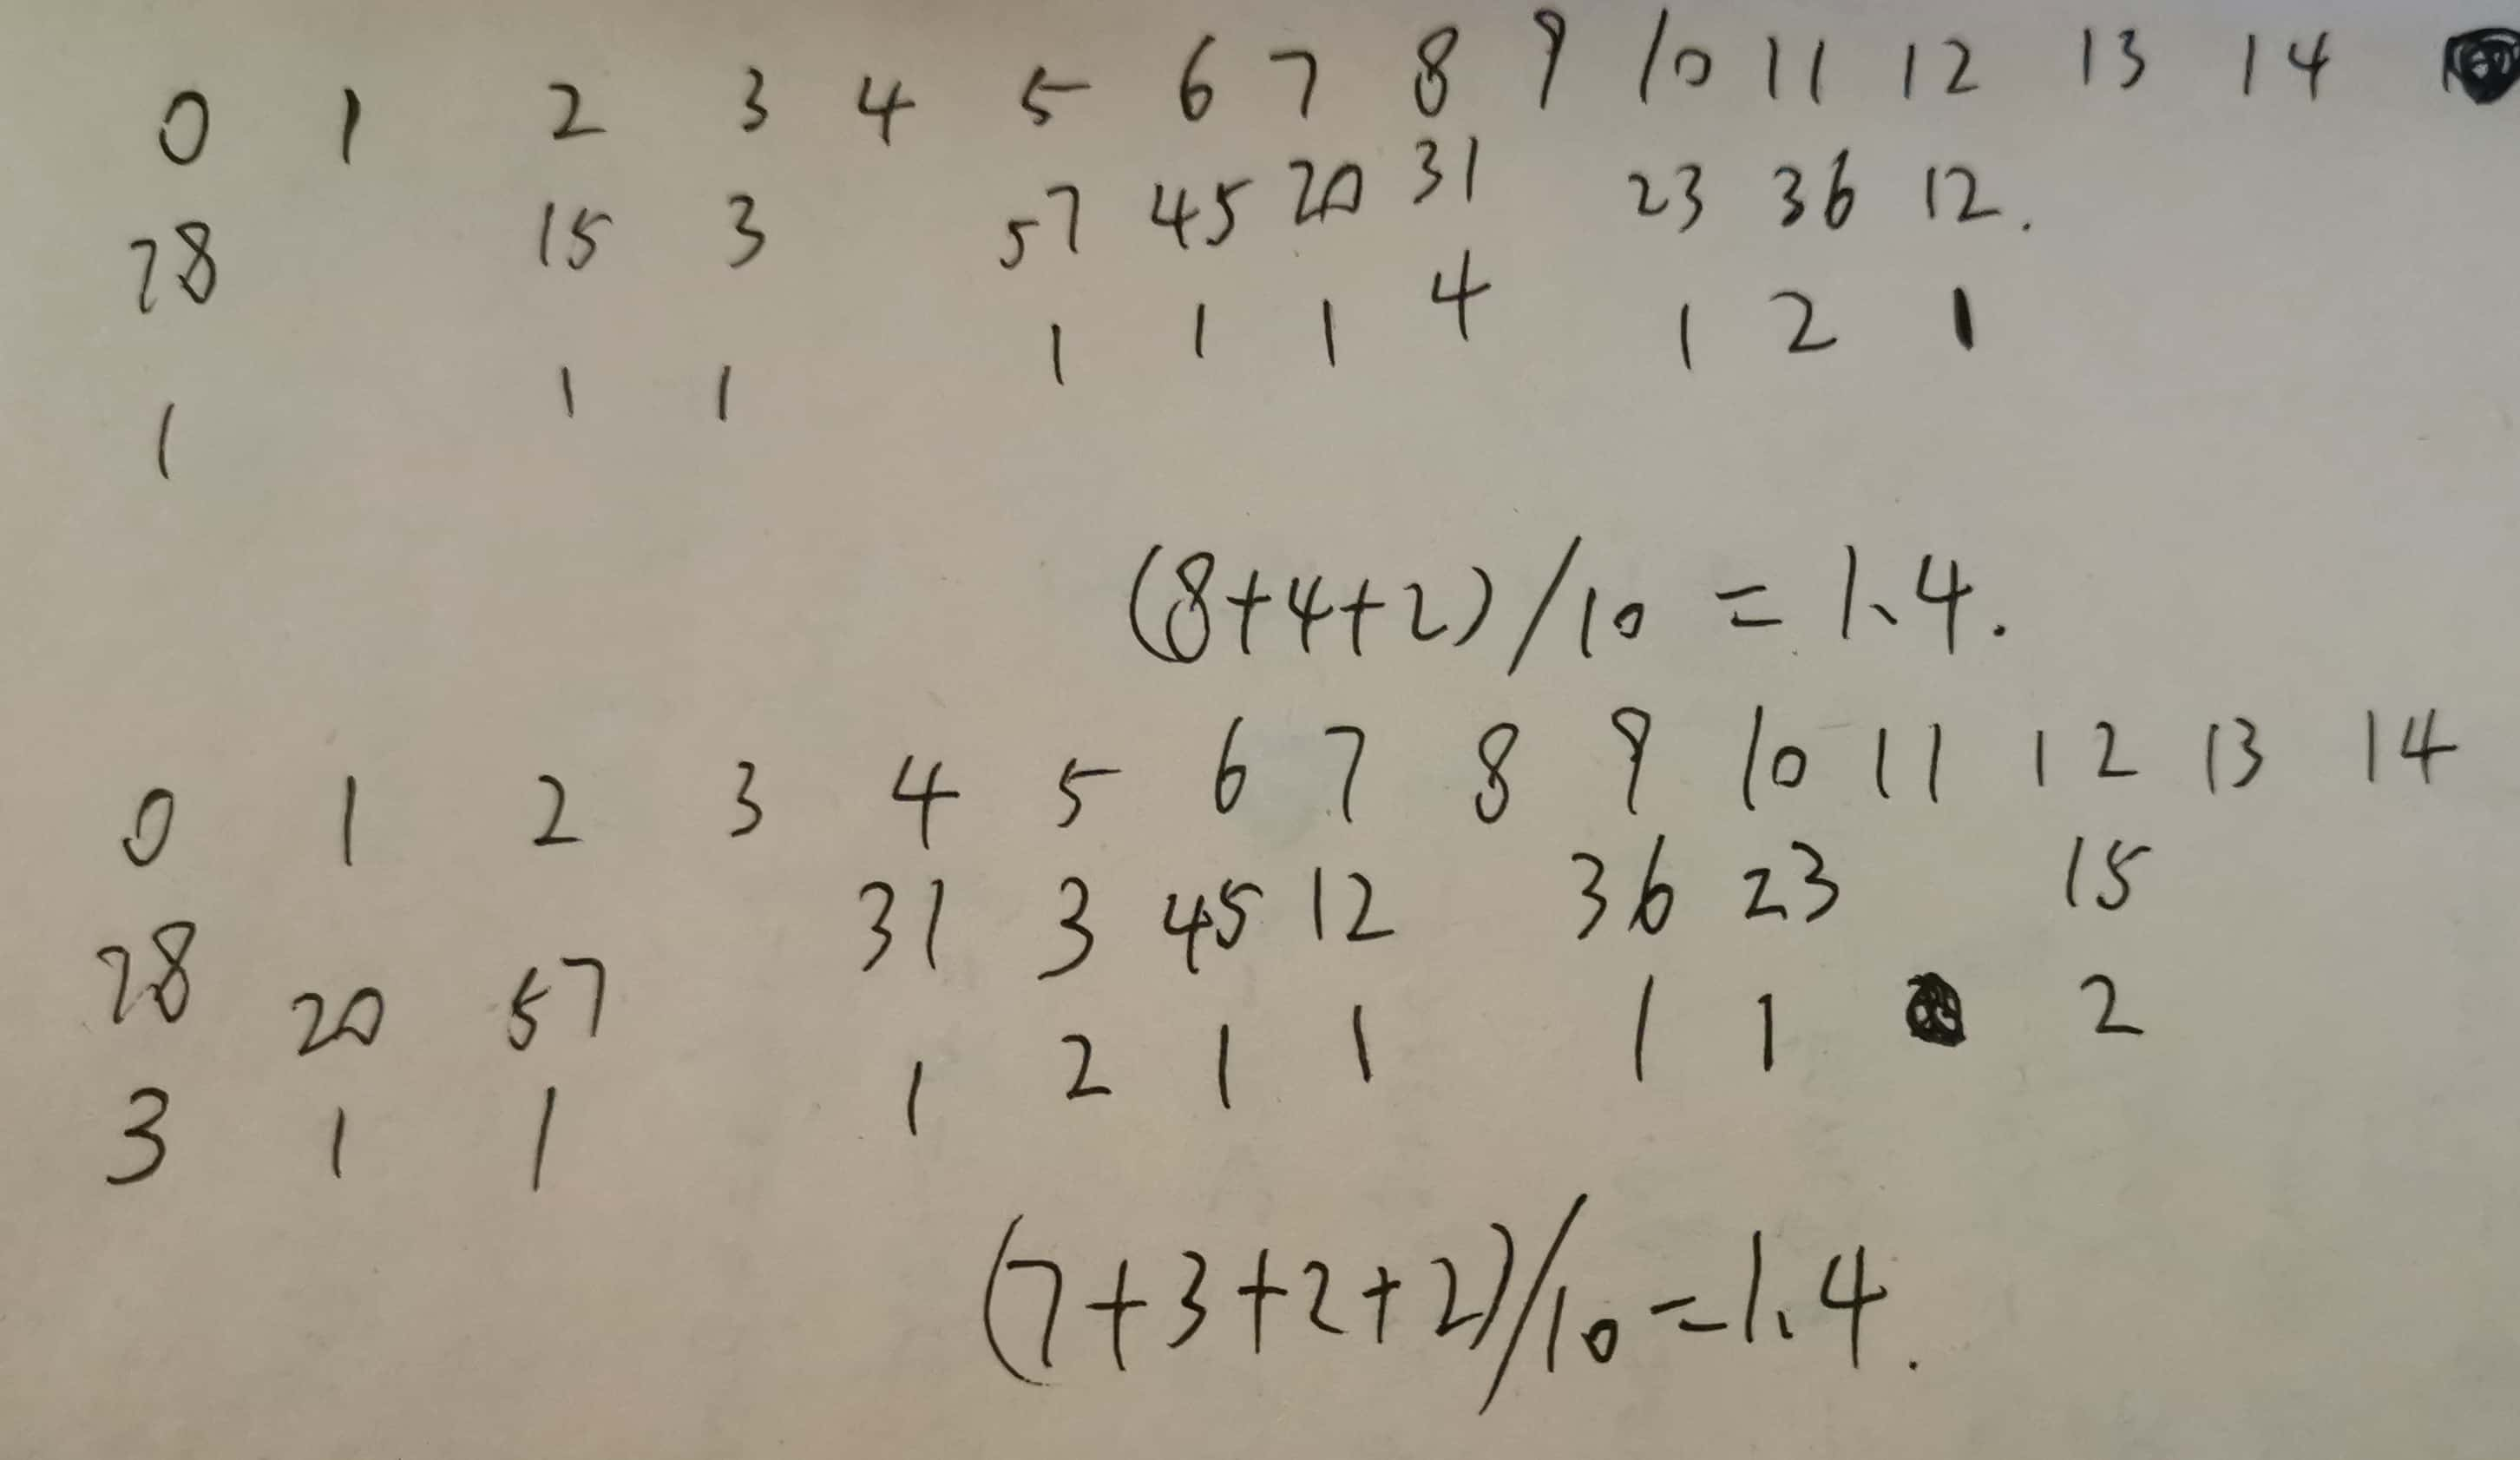 0 1 2 3 4 5 6 7 8 9 10 11 12 13 14
78 15 3 57 45 20 31 23 36 12.
1 1 1 1 1 1 4 1 2 1
(8+4+2)/10 = 1.4.
0 1 2 3 4 5 6 7 8 9 10 11 12 13 14
78 20 57 31 3 45 12 36 23 15
3 1 1 1 2 1 1 1 1 2
(7+3+2+2)/10=1.4.